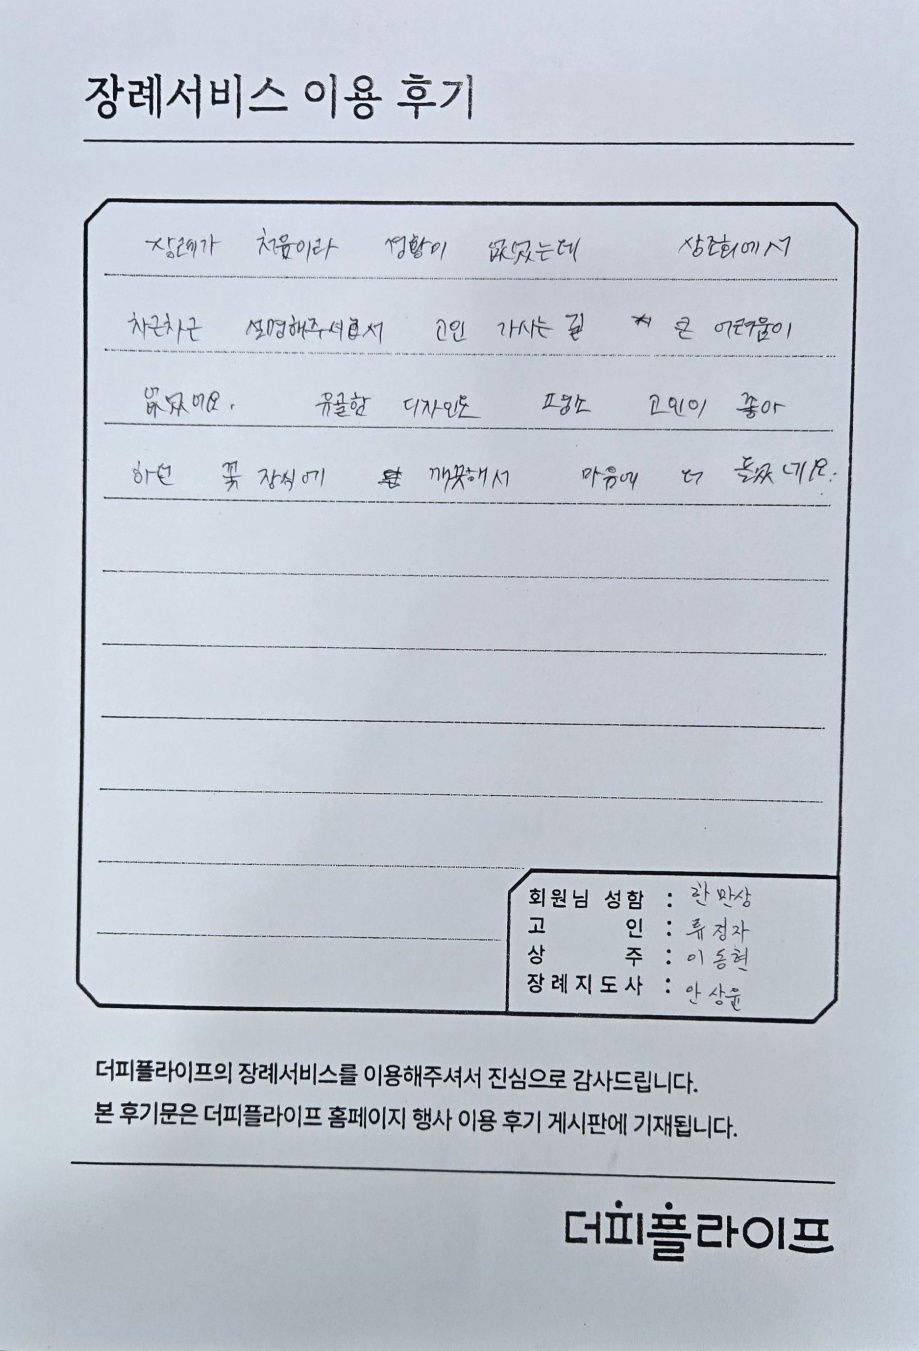 장례서비스 이용 후기
장례가 처음이라 경황이 없었는데 상조회에서
차근차근 설명해주셔서 고인 가시는 길 큰 어려움이
없었어요. 유골함 디자인도 평소 고인이 좋아
하던 꽃 장식에 깨끗해서 마음에 더 들었네요.
회원님 성함 : 한만상
고 인 : 류정자
상 주 : 이동현
장례지도사 : 안상윤
더피플라이프의 장례서비스를 이용해주셔서 진심으로 감사드립니다.
본 후기문은 더피플라이프 홈페이지 행사 이용 후기 게시판에 기재됩니다.
더피플라이프